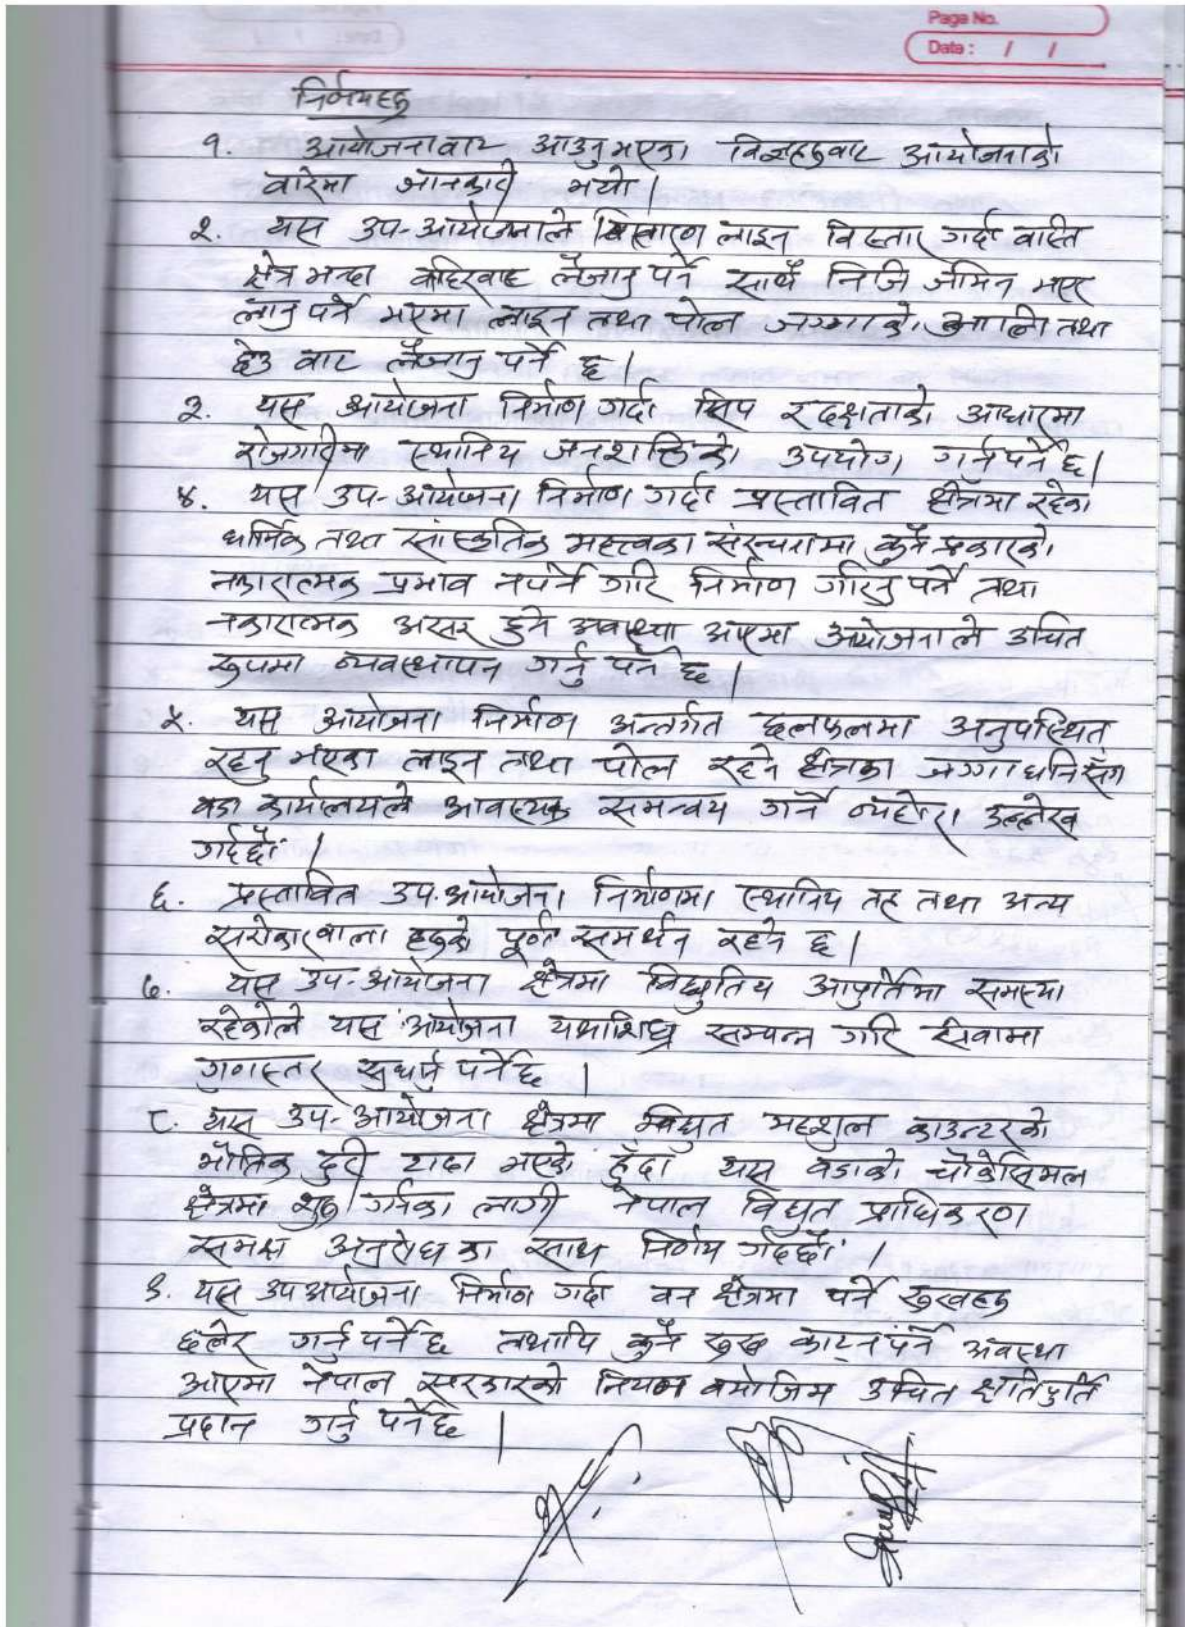 Page No.
Date : / /
निर्णयहरु
१. आयोजनावाट आउनु भएका विज्ञहरुवाट आयोजनाको
वारेमा जानकारी भयो ।
२. यस उप-आयोजनाले विस्तारण लाइन विस्तार गर्दा वास्ति
क्षेत्र भन्दा वाहिरवाट लैजानु पर्ने साथै निजि जमिन भएर
लानु पर्ने भएमा लाइन तथा पोल जग्गाको आली तथा
छेउ वाट लैजानु पर्ने छ ।
३. यस आयोजना निर्माण गर्दा सिप र दक्षताको आधारमा
रोजगारीमा स्थानिय जनशक्तिको उपयोग गर्नुपर्ने छ ।
४. यस उप-आयोजना निर्माण गर्दा प्रस्तावित क्षेत्रमा रहेका
धार्मिक तथा सांस्कृतिक महत्वका संरचनामा कुनै प्रकारको
नकारात्मक प्रभाव नपर्ने गरि निर्माण गरिनु पर्ने तथा
नकारात्मक असर हुने अवस्था आएमा आयोजनाले उचित
रुपमा व्यवस्थापन गर्नु पर्ने छ ।
५. यस आयोजना निर्माण अन्तर्गत छलफलमा अनुपस्थित
रहनु भएका लाइन तथा पोल रहने क्षेत्रका जग्गा धनिसँग
वडा कार्यालयले आवश्यक समन्वय गर्ने व्यहोरा उल्लेख
गर्दछौं ।
६. प्रस्तावित उप-आयोजना निर्माणमा स्थानिय तह तथा अन्य
सरोकारवाला हरुको पूर्ण समर्थन रहने छ ।
७. यस उप-आयोजना क्षेत्रमा विद्युतिय आपुर्तिमा समस्या
रहेकोले यस आयोजना यथाशिघ्र सम्पन्न गरि सेवामा
गुणस्तर सुधार्नु पर्नेछ ।
८. यस उप-आयोजना क्षेत्रमा विद्युत महशुल काउन्टरको
भौतिक दुरी टाढा भएको हुँदा यस वडाको चौकेसिमल
क्षेत्रमा शुरु गर्नका लागी नेपाल विद्युत प्राधिकरण
समक्ष अनुरोधका साथ निर्णय गर्दछौं ।
९. यस उपआयोजना निर्माण गर्दा वन क्षेत्रमा पर्ने रुखहरु
छलेर गर्नु पर्नेछ तथापि कुनै रुख काट्नुपर्ने अवस्था
आएमा नेपाल सरकारको नियम वमोजिम उचित क्षतिपुर्ति
प्रदान गर्नु पर्नेछ ।